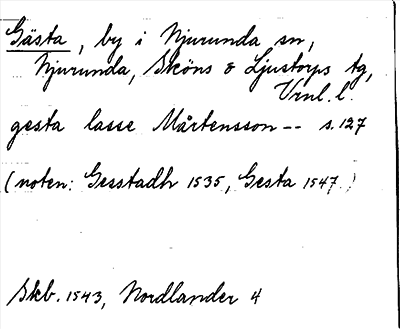 Gästa, by i Njurunda sn,
Njurunda, Sköns & Ljustorps tg,
Vrnl. l.
gesta lasse Mårtensson -- s. 127
(noten: Gesstadh 1535, Gesta 1547.)
Skb. 1543, Nordlander 4